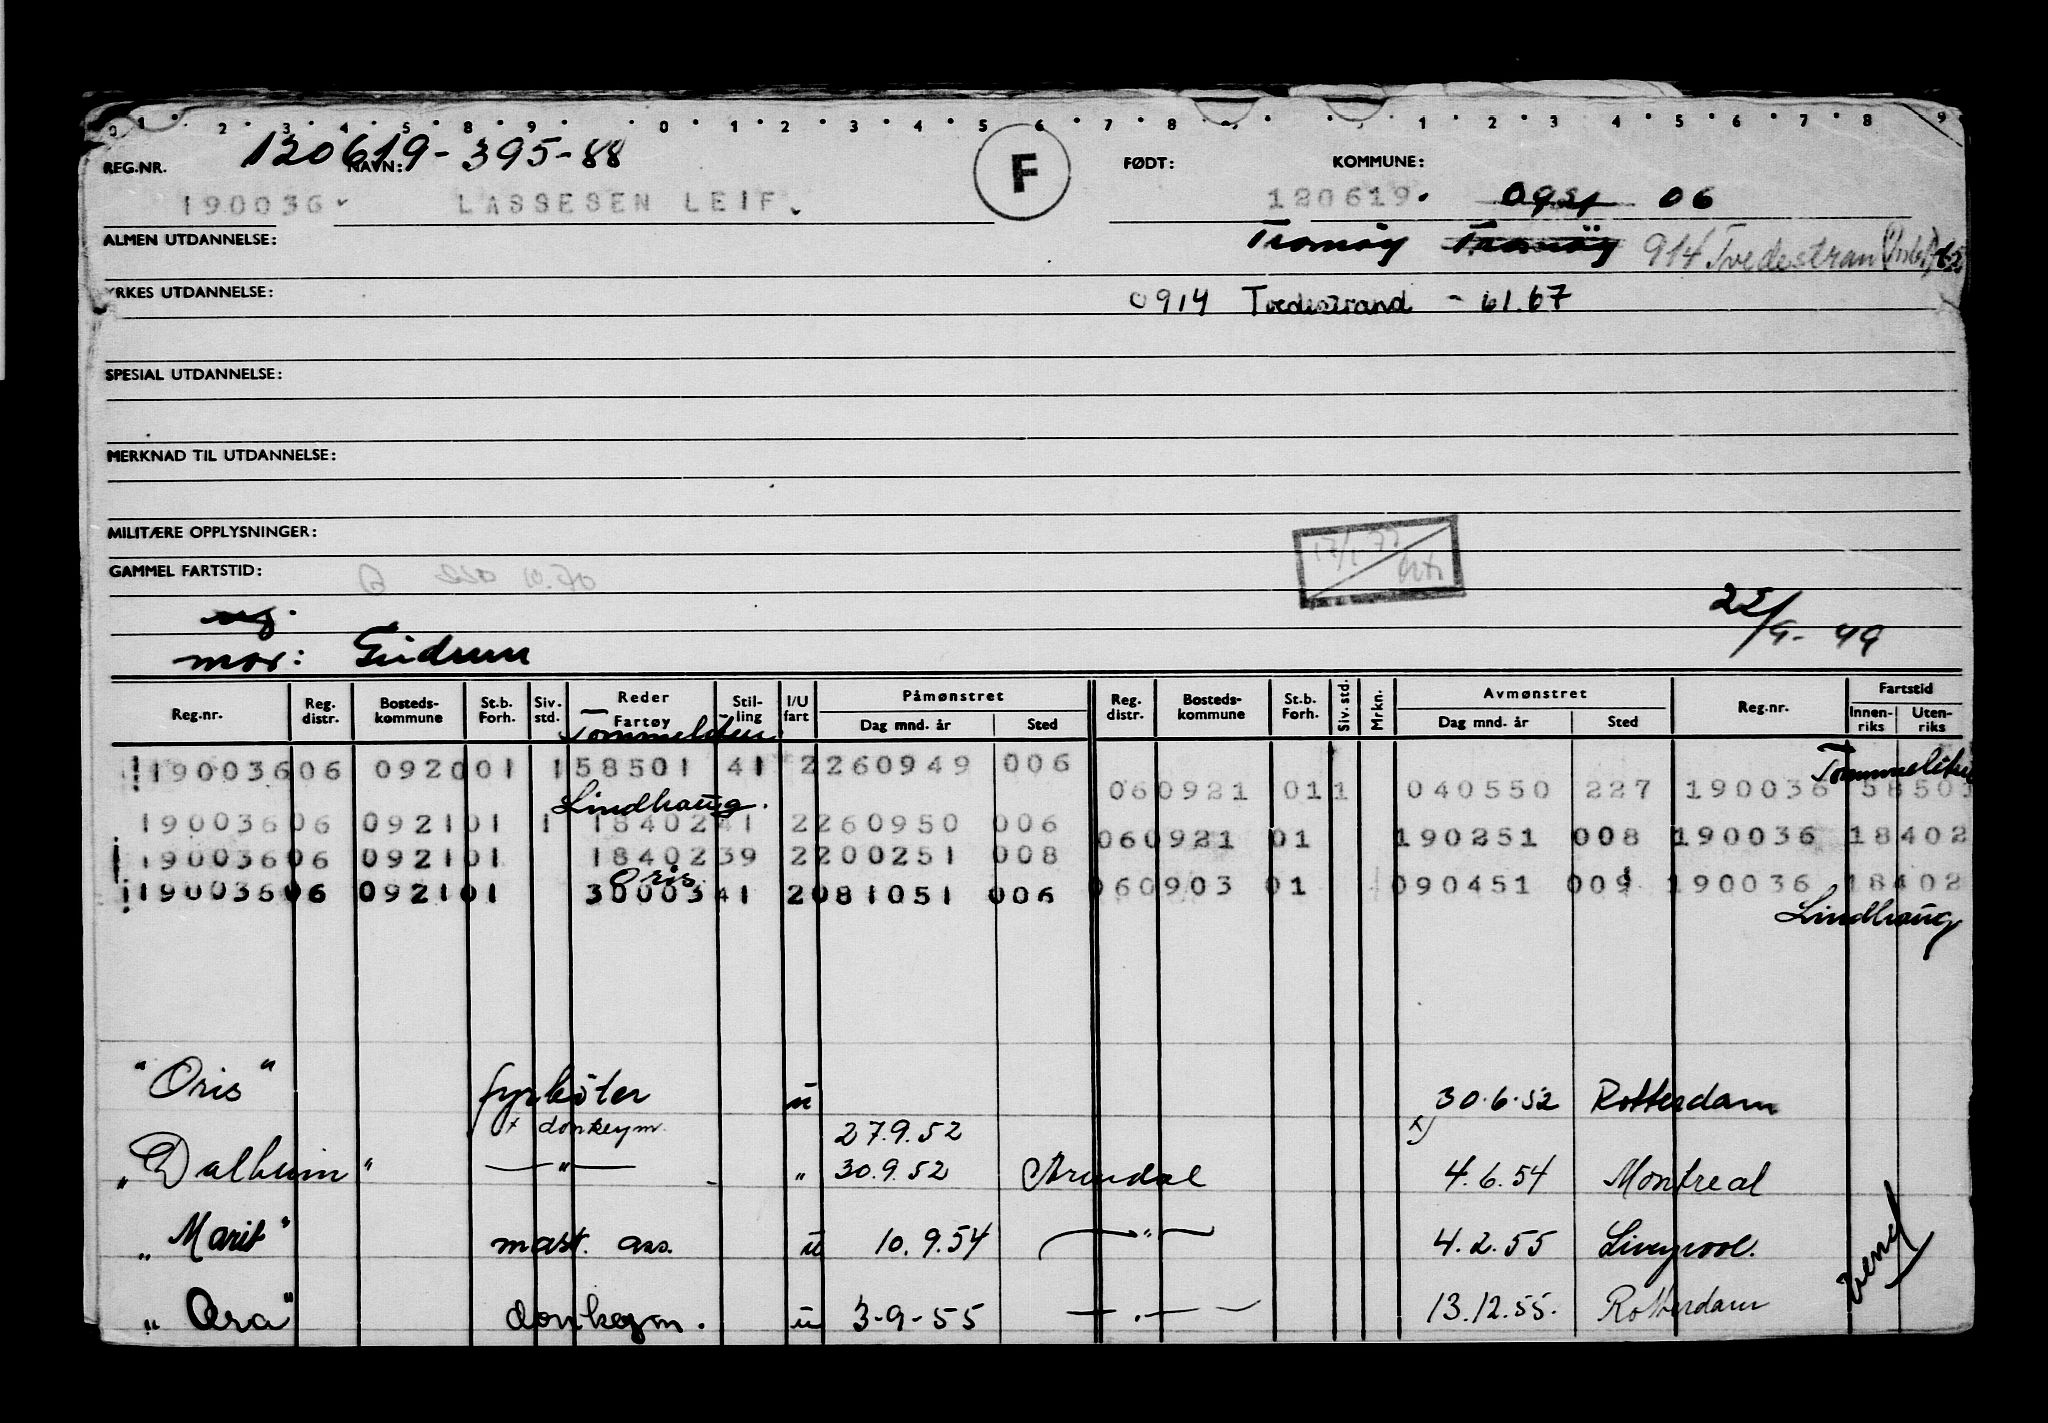 0 1 2 3 4 5 8 9 0 1 2 3 4 5 6 7 8 1 2 3 4 5 6 7 8 9
REG.NR. 120619-395-88 NAVN: F FØDT: KOMMUNE:
190036 LASSESEN LEIF. 120619. 06
ALMEN UTDANNELSE: Tromöy Tromöy 914 Tvedestran
YRKES UTDANNELSE: 0914 Tvedestrand - 61.67
SPESIAL UTDANNELSE:
MERKNAD TIL UTDANNELSE:
MILITÆRE OPPLYSNINGER:
GAMMEL FARTSTID: 10.70
22/9-49
mor: Gudrun
Reg.nr. Reg. distr. Bosteds-kommune St.b. Forh. Siv. std. Reder Fartøy Stil-ling I/U fart Påmønstret Dag mnd. år Sted Reg. distr. Bosteds-kommune St.b. Forh. Siv. std. Mrkn. Avmønstret Dag mnd. år Sted Reg.nr. Fartstid Innen-riks Uten-riks
190036 06 0920 01 1 58501 41 2 260949 006
06 0921 01 1 040550 227 190036 58501
Lindhaug.
190036 06 0921 01 1 18402 41 2 260950 006 06 0921 01 190251 008 190036 18402
190036 06 0921 01 18402 39 2 200251 008
Oris
06 0903 01 090451 009 190036 18402
190036 06 0921 01 30003 41 2 081051 006
Lindhaug
"Oris" fyrböter u 30.6.52 Rotterdam
x donkeym. 27.9.52 x)
"Dalheim" —"— " 30.9.52 Arendal 4.6.54 Montreal
"Marit" mask. ass. u 10.9.54 —"— 4.2.55 Liverpool.
"Ora" donkeym. u 3-9-55 —"— 13.12.55. Rotterdam
vend